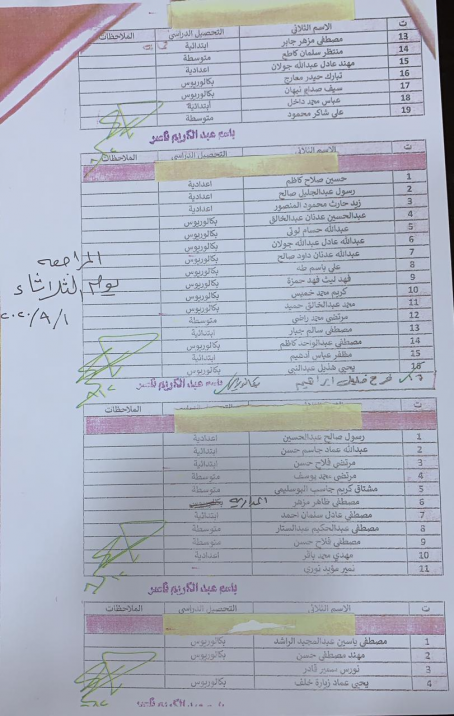 ت الاسم الثلاثي التحصيل الدراسي الملاحظات
13 مصطفى مزهر جابر ابتدائية
14 منتظر سلمان كاطع متوسطة
15 مهند عادل عبدالله جولان اعدادية
16 تبارك حيدر معارج بكالوريوس
17 سيف صدام نبهان بكالوريوس
18 عباس محمد داخل ابتدائية
19 علي شاكر محمود متوسطة
باسم عبد الكريم ناصر
ت الاسم الثلاثي التحصيل الدراسي الملاحظات
1 حسين صلاح كاظم اعدادية
2 رسول عبدالجليل صالح اعدادية
3 زيد حارث محمود المنصور اعدادية
4 عبدالحسين عدنان عبدالخالق بكالوريوس
5 عبدالله حسام بكالوريوس
6 عبدالله عادل عبدالله جولان بكالوريوس
7 عبدالله عدنان داود صالح بكالوريوس
8 علي باسم طه بكالوريوس
9 فهد ليث فهد حمزة بكالوريوس
10 كريم محمد خميس بكالوريوس
11 محمد عبدالخالق حميد بكالوريوس
12 مرتضى محمد راضي متوسطة
13 مصطفى سالم جبار ابتدائية
14 مصطفى عبدالواحد كاظم بكالوريوس
15 مظفر عباس ابتدائية
16 يحيى عبدالنبي بكالوريوس
فرح خليل ابراهيم بكالوريوس
باسم عبد الكريم ناصر
المراجعه
يوم الثلاثاء
٢٠٢٠/٩/١
ت الاسم الثلاثي الملاحظات
1 رسول صالح عبدالحسين اعدادية
2 عبدالله عماد جاسم حسن ابتدائية
3 مرتضى فلاح حسن ابتدائية
4 مرتضى محمد يوسف متوسطة
5 مشتاق كريم جاسب متوسطة
6 مصطفى طاهر مزهر اعدادية
7 مصطفى عادل سلمان احمد ابتدائية
8 مصطفى عبدالحكيم عبدالستار متوسطة
9 مصطفى فلاح حسن متوسطة
10 مهدي محمد باقر اعدادية
11 نمير مؤيد نوري
باسم عبد الكريم ناصر
ت الاسم الثلاثي التحصيل الدراسي الملاحظات
1 مصطفى ياسين عبدالمجيد الراشد بكالوريوس
2 مهند مصطفى حسن بكالوريوس
3 نورس سمير قادر
4 يحيى عماد زبارة خلف بكالوريوس
باسم عبد الكريم ناصر